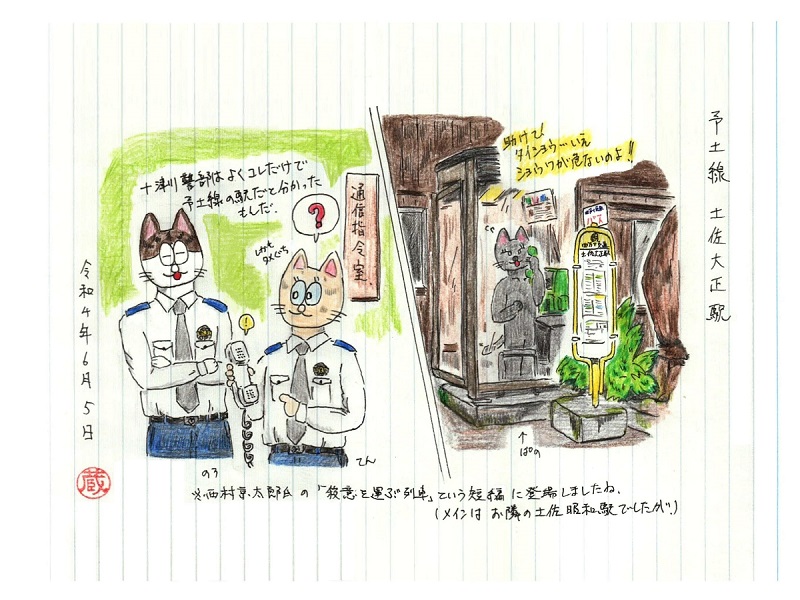 予土線 土佐大正駅
助けて!
タイショウ…いえ
ショウワが危ないのよ!!
バス
土佐大正駅
↑
ぱの
通信指令室
十津川警部はよくコレだけで
予土線の駅だと分かった
もしだ.
?
しかも
タメぐち
!
のろ
てん
※西村京太郎氏の「殺意を運ぶ列車」という短編に登場しましたね.
(メインはお隣の土佐昭和駅でしたが.)
令和4年6月5日
蔵